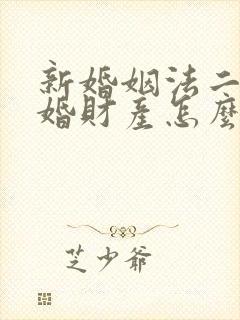 新婚姻法二
婚財産怎麽
芝少爺